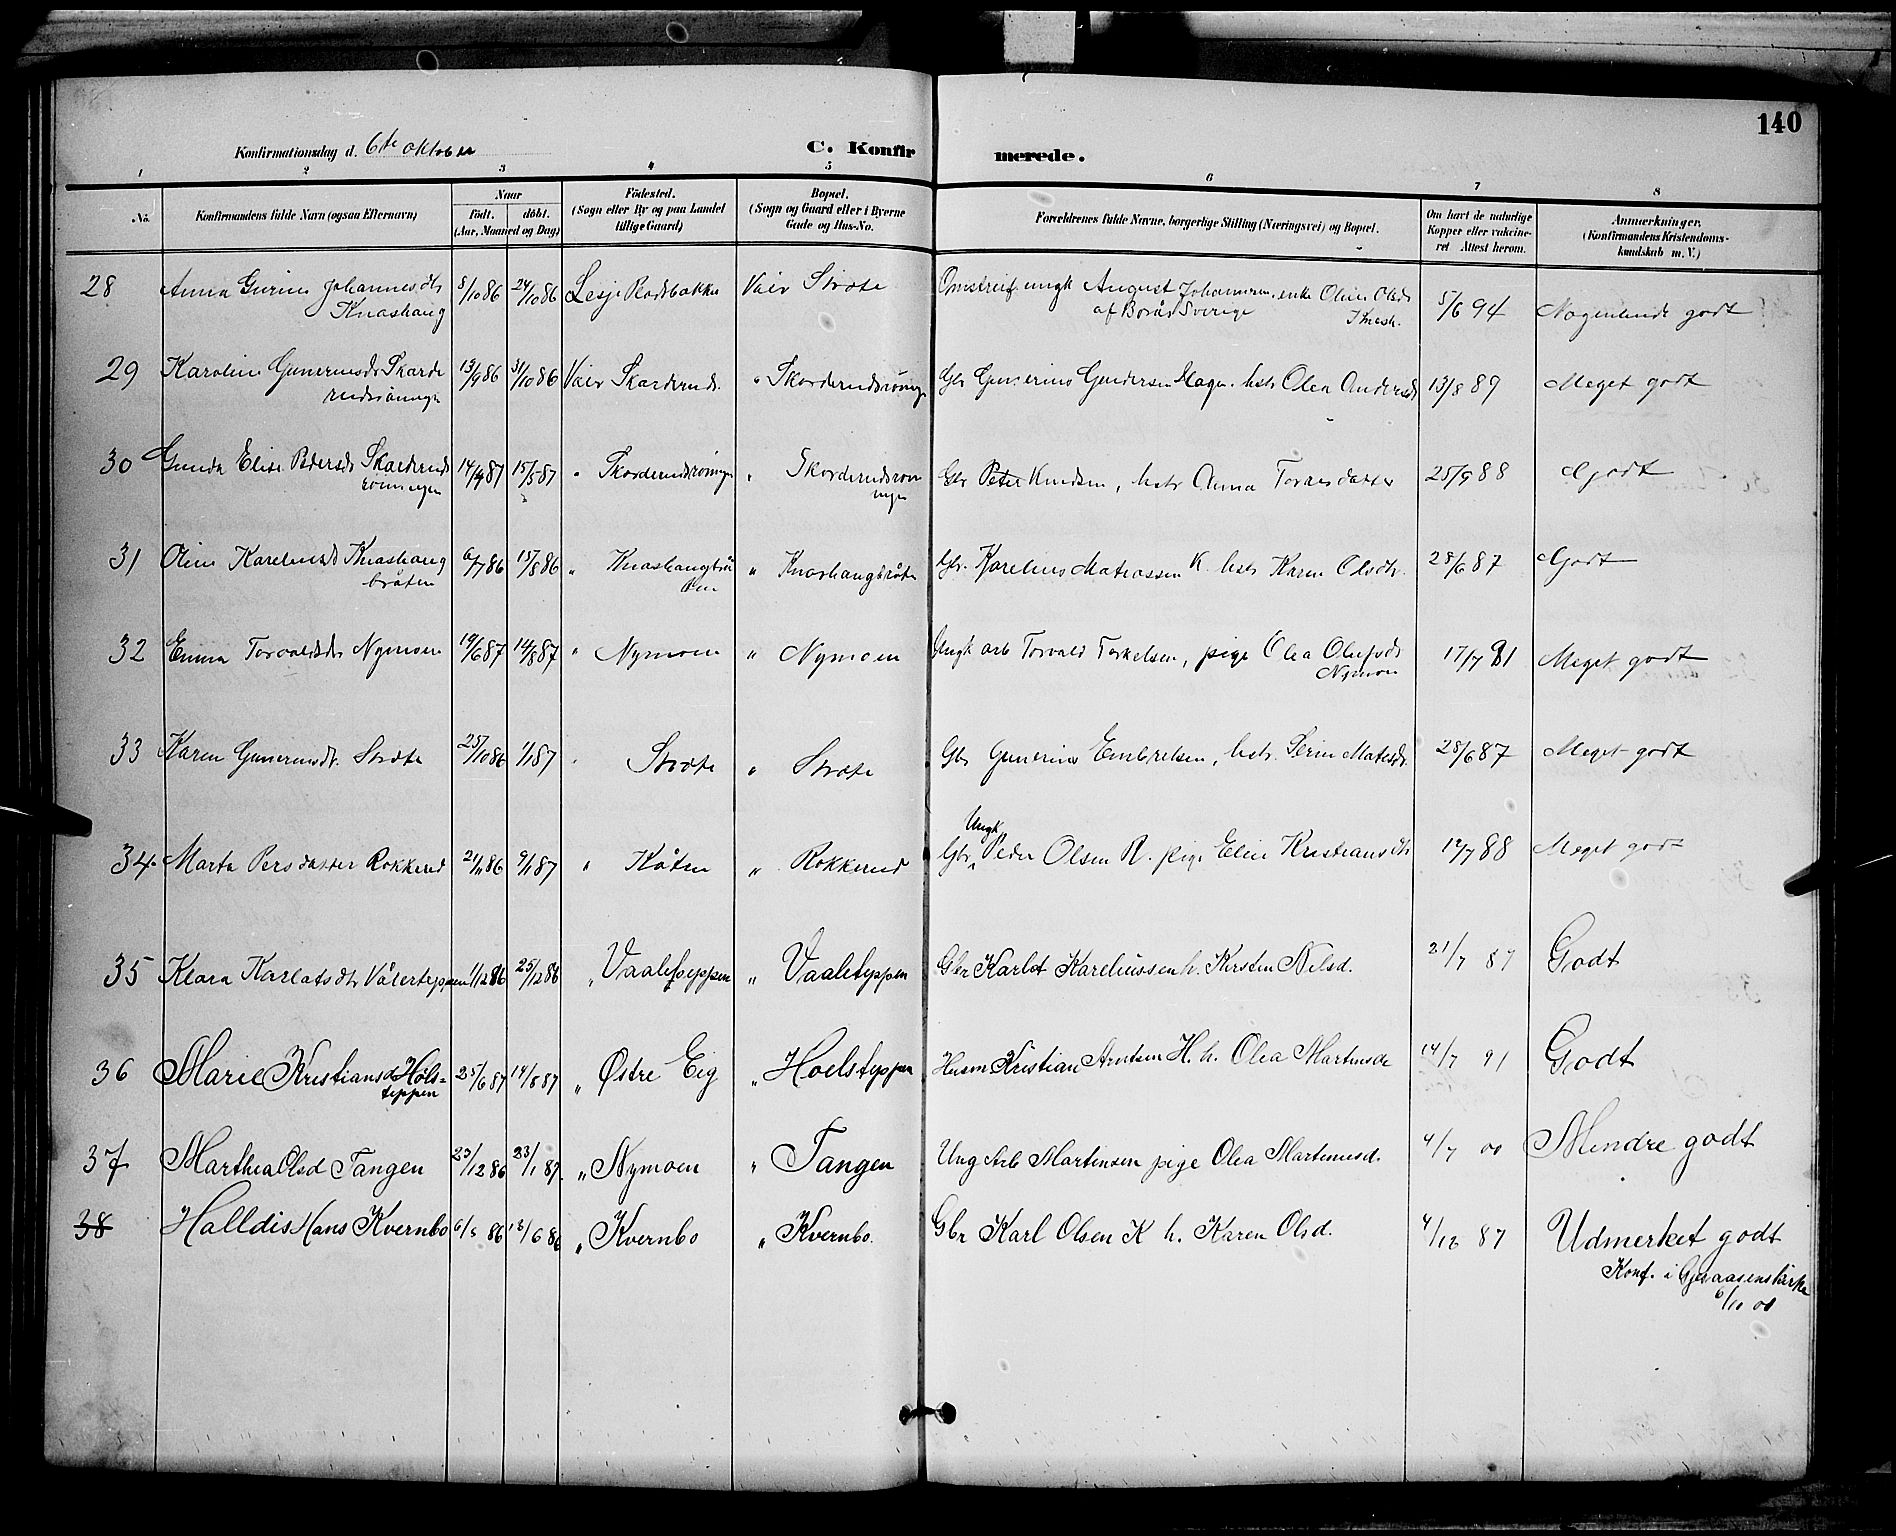 140
Konfirmationsdag d. 6te oktober C. Konfirmerede.
1 2 3 4 5 6 7 8
No. Konfirmandens fulde Navn (ogsaa Efternavn) Naar født. døbt. (Aar, Maaned og Dag) Fødested. (Sogn eller By og paa Landet tillige Gaard) Bopæl. (Sogn og Gaard eller i Byerne Gade og Hus-No. Forældrenes fulde Navne, borgerlige Stilling (Næringsvei) og Bopæl. Om havt de naturlige Kopper eller vakcineret Attest herom. Anmærkninger. (Konfirmandens Kristendomskundskab m. V.)
28 Anna Gurine Johannesdtr 8/10 86 24/10 86 Lesje Rodsbakke Valer Stræte Omstreif ungk August Johannesen enke Oline Olsdr 5/6 94 Nogenlunde godt
Knashaug af Borås Sverige Knash.
29 Karoline Gunerinusdr Skarde 13/9 86 31/10 86 Valer Skarderud. " Skarderudsrøningen Gbr Gunerius Gundersen Hagen. hstr Olea Andersdr 13/8 89 Meget godt
rudsrøningen
30 Gunda Elise Pedersdr Skarderuds 14/4 87 15/5 87 " Skarderudsrøningen " Skarderudsrøn Gbr Peter Knudsen, hstr Anna Toresdatter 25/9 88 Godt
røningen ingen
31 Oline Kareliusd Knashaug 6/7 86 15/8 86 " Knashaugbrå " Knashaugbråte Gbr. Karelius Matiassen K. hstr Karen Olsdtr. 28/6 87 Godt
bråten ten
32 Emma Torvaldsdr Nymoen 19/6 87 14/8 87 " Nymoen " Nymoen Ungk arb Torvald Torkelsen, pige Olea Olufsdr 17/7 91 Meget godt
Nymoen
33 Karen Gunerinusdr. Stræte 25/10 86 1/1 87 " Stræte " Stræte Gbr Gunerius Embretsen, hstr. Serine Matisdr. 28/6 87 Meget godt
Ungk
34. Marta Persdatter Rokkerud 21/11 86 9/1 87 " Kåten " Rokkerud Gbr Peder Olsen R. pige Eline Kristiansdtr 12/7 88 Meget godt
35 Klara Karlatsdtr Vålerteppen 1/12 86 25/12 86 " Vaaleteppen " Vaaleteppen Gbr Karlot Kareliussen h. Kirsten Nilsd. 21/7 87 Godt
36 Marie Kristiansd. Høls= 25/6 87 14/8 87 " Østre Eig " Hoelsteppen Husm Kristian Arntsen H. h. Olea Martinsdr 14/7 91 Godt
teppen
37 Marthea Olsd Tangen 23/12 86 23/1 87. " Nymoen " Tangen Ung Arb Martinsen pige Olea Martinusd. 4/7 00 Mindre godt
38 Halldis Hans Kvernbo 6/5 86 13/6 86 " Kvernbo " Kvernbo. Gbr Karl Olsen K h. Karen Olsd. 4/12 87 Udmerket godt
Konf. i Gjesaasens kirke
6/10 01